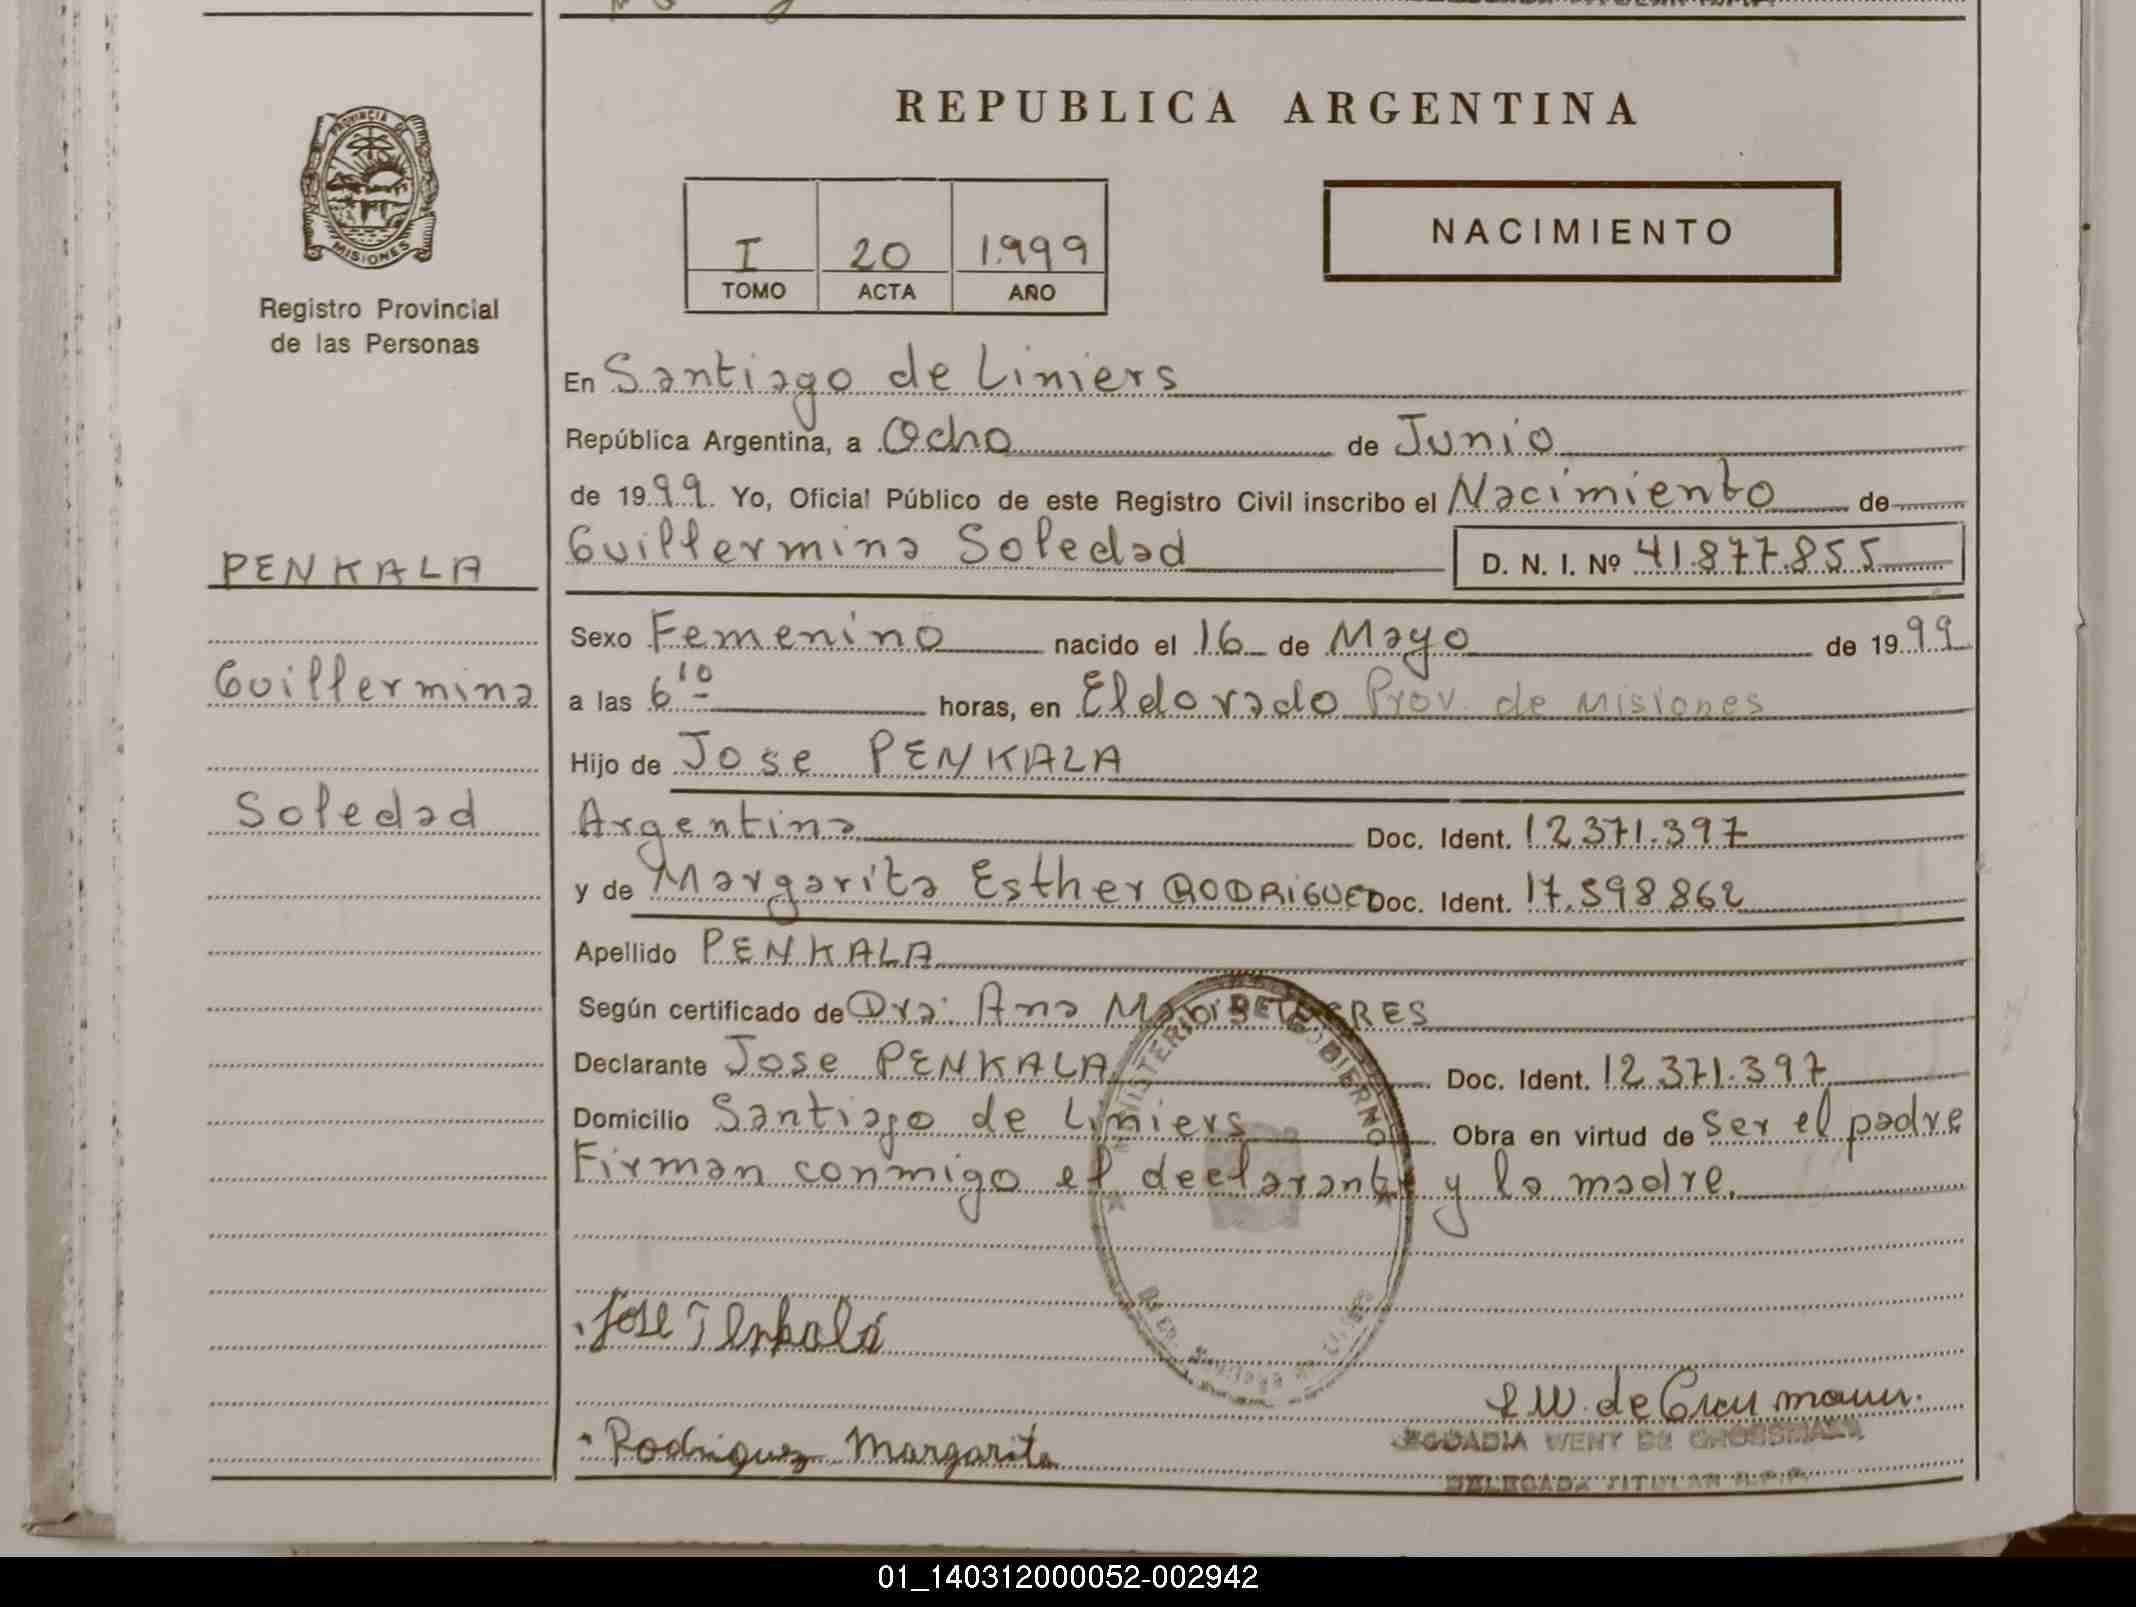 REPUBLICA ARGENTINA
PROVINCIA DE
MISIONES
Registro Provincial
de las Personas
I 20 1.999
TOMO ACTA AÑO
NACIMIENTO
En Santiago de Liniers
República Argentina, a Ocho de Junio
de 1999 Yo, Oficial Público de este Registro Civil inscribo el Nacimiento de
PENKALA
Guillermina Soledad D. N. I. Nº 41.877.855
Sexo Femenino nacido el 16 de Mayo de 1999
Guillermina
a las 6 10 horas, en Eldorado Prov. de Misiones
Hijo de Jose PENKALA
Soledad
Argentina Doc. Ident. 12.371.397
y de Margarita Esther RODRIGUEZ Doc. Ident. 17.598.862
Apellido PENKALA
Según certificado de Dra. Ana
Declarante Jose PENKALA Doc. Ident. 12.371.397
Domicilio Santiago de Liniers Obra en virtud de ser el padre
Firman conmigo el declarante y la madre.
MINISTERIO DE GOBIERNO
Jose Penkala
Rodriguez Margarita
WENT DE GROSSMANN
DELEGADA TITULAR R.P.P.
01_140312000052-002942